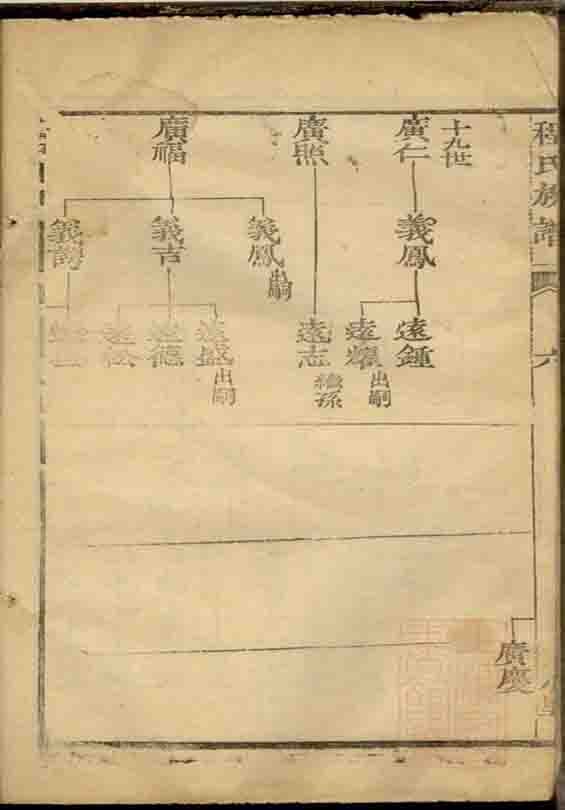 程氏族譜
六
十九世
廣仁
廣照
廣福
義鳳
義鳳
出嗣
義吉
遠鍾
遠耀
出嗣
遠志
繼孫
遠盛
出嗣
遠德
遠松
廣慶